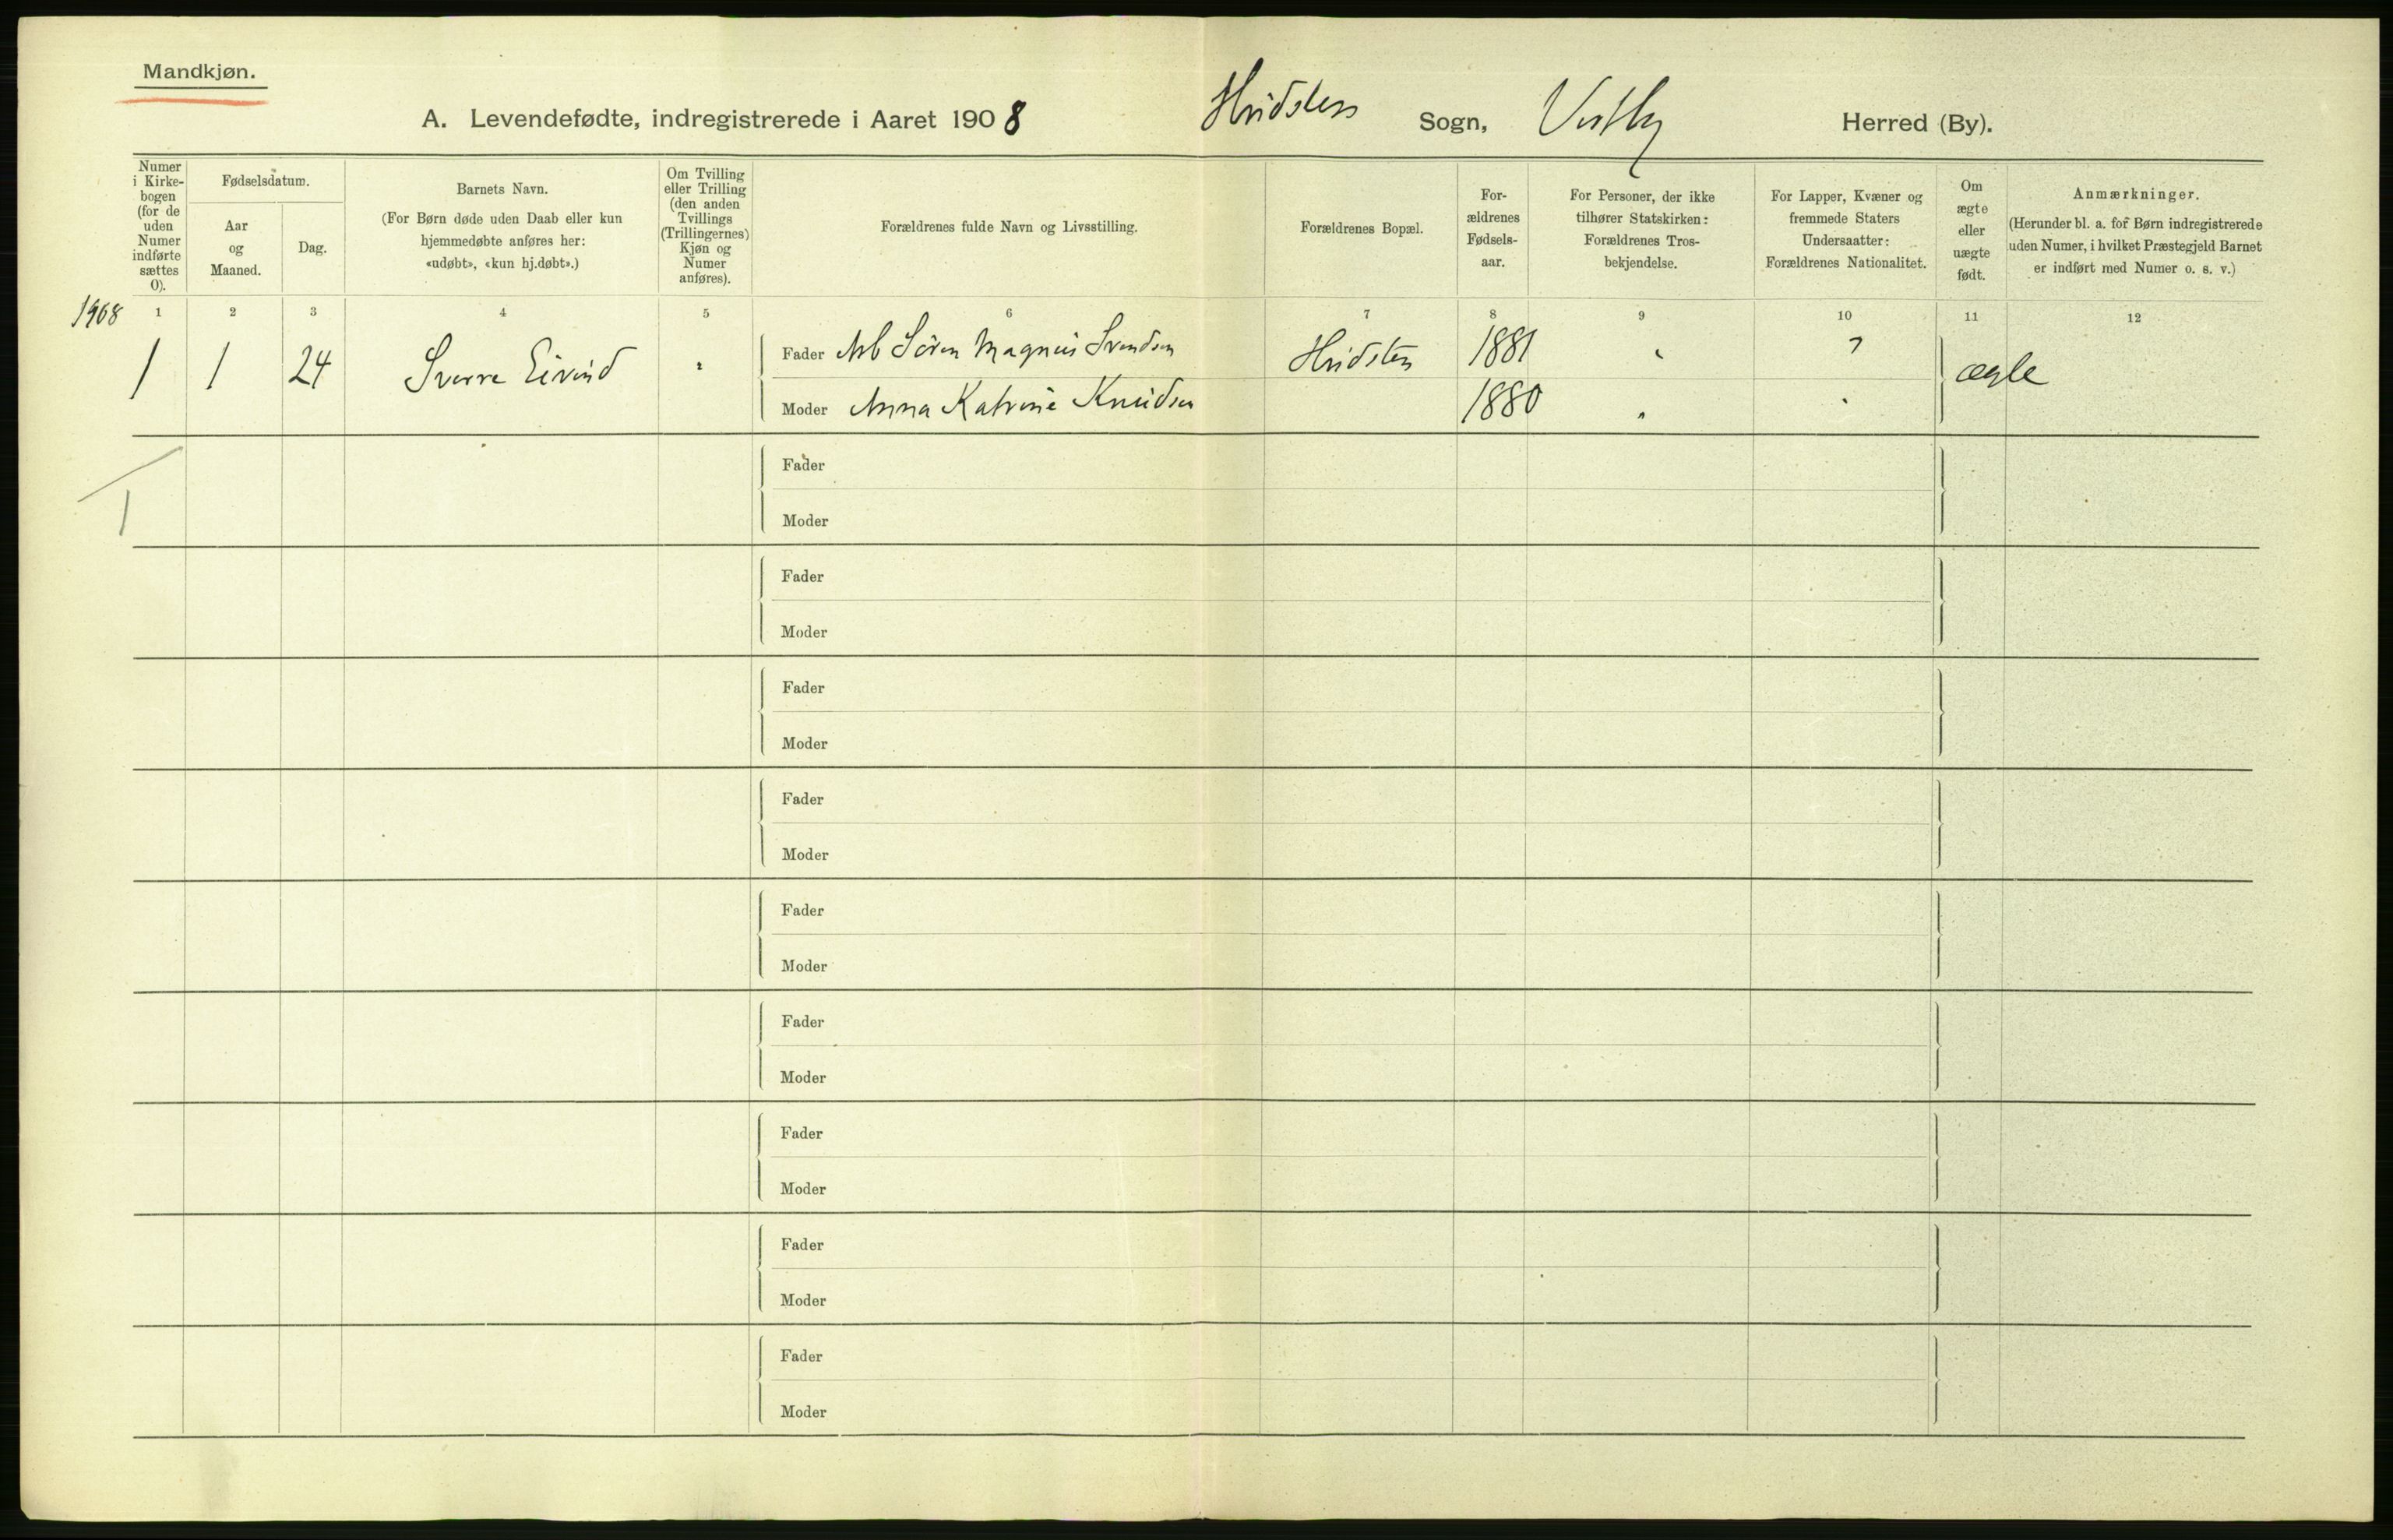 Mandkjøn.
A. Levendefødte, indregistrerede i Aaret 1908 Hvidsten Sogn, Vestby Herred (By).
Numer i Kirke-bogen (for de uden Numer indførte sættes 0).
Fødselsdatum.
Aar og Maaned.
Dag.
Barnets Navn.
(For Børn døde uden Daab eller kun
hjemmedøbte anføres her:
«udøbt», «kun hj.døbt».)
Om Tvilling
eller Trilling
(den anden
Tvillings
(Trillingernes)
Kjøn og
Numer
anføres).
Forældrenes fulde Navn og Livsstilling.
Forældrenes Bopæl.
For-
ældrenes
Fødsels-
aar.
For Personer, der ikke
tilhører Statskirken:
Forældrenes Tros-
bekjendelse.
For Lapper, Kvæner og
fremmede Staters
Undersaatter:
Forældrenes Nationalitet.
Om
ægte
eller
uægte
født.
Anmærkninger.
(Herunder bl. a. for Børn indregistrerede
uden Numer, i hvilket Præstegjeld Barnet
er indført med Numer o. s. v.)
1908 1 2 3 4 5 6 7 8 9 10 11 12
1 1 24 Sverre Eivind " Fader Arb Søren Magnus Svendsen Hvidsten 1881 " " ægte
Moder Anna Katrine Knudsen 1880 " "
Fader
1
Moder
Fader
Moder
Fader
Moder
Fader
Moder
Fader
Moder
Fader
Moder
Fader
Moder
Fader
Moder
Fader
Moder